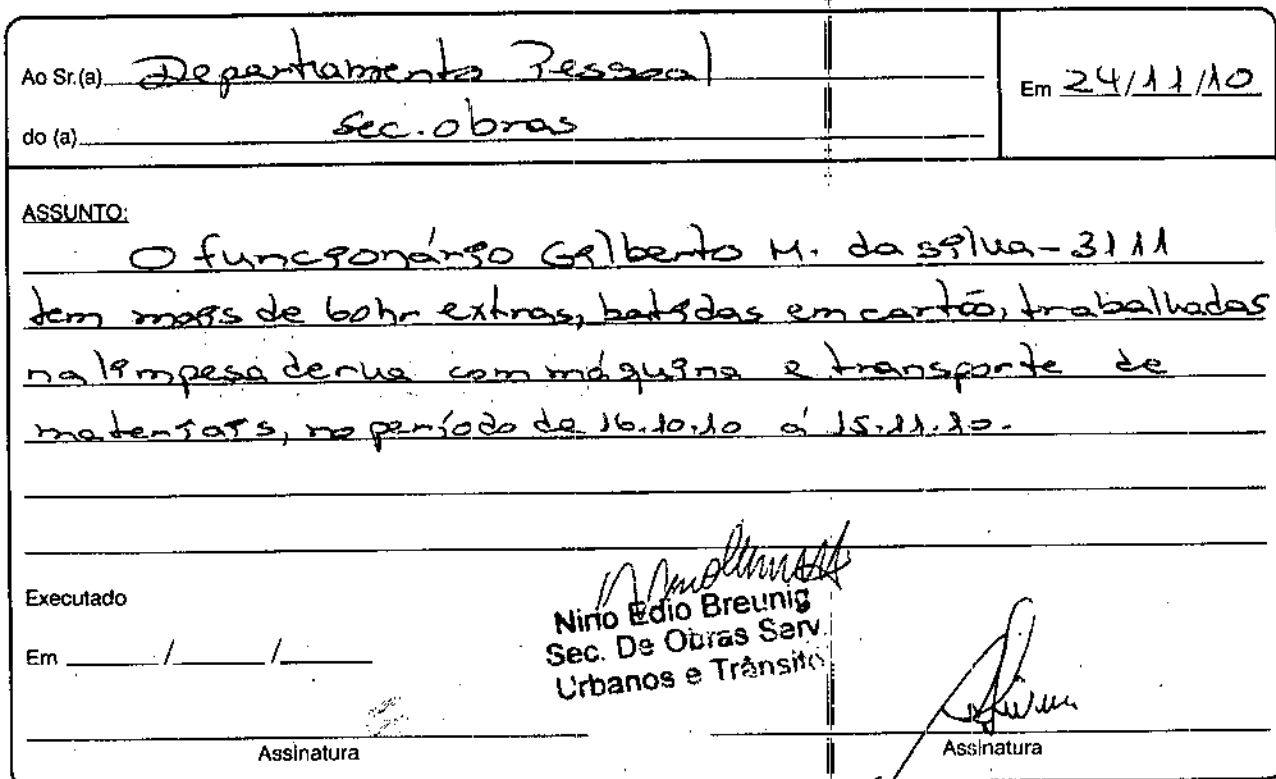 Ao Sr.(a) Departamento Pessoal
Em 24/11/10
do (a) Sec. obras
ASSUNTO:
O funcionário Gilberto M. da silva - 3111
tem mais de 60hr extras, batidas em cartão, trabalhadas
na limpesa de rua com máquina e transporte de
materiais, no período de 16.10.10 á 15.11.10.
Executado
Em ____/____/____
Nirio Edio Breunig
Sec. De Obras Serv.
Urbanos e Trânsito
Assinatura
Assinatura